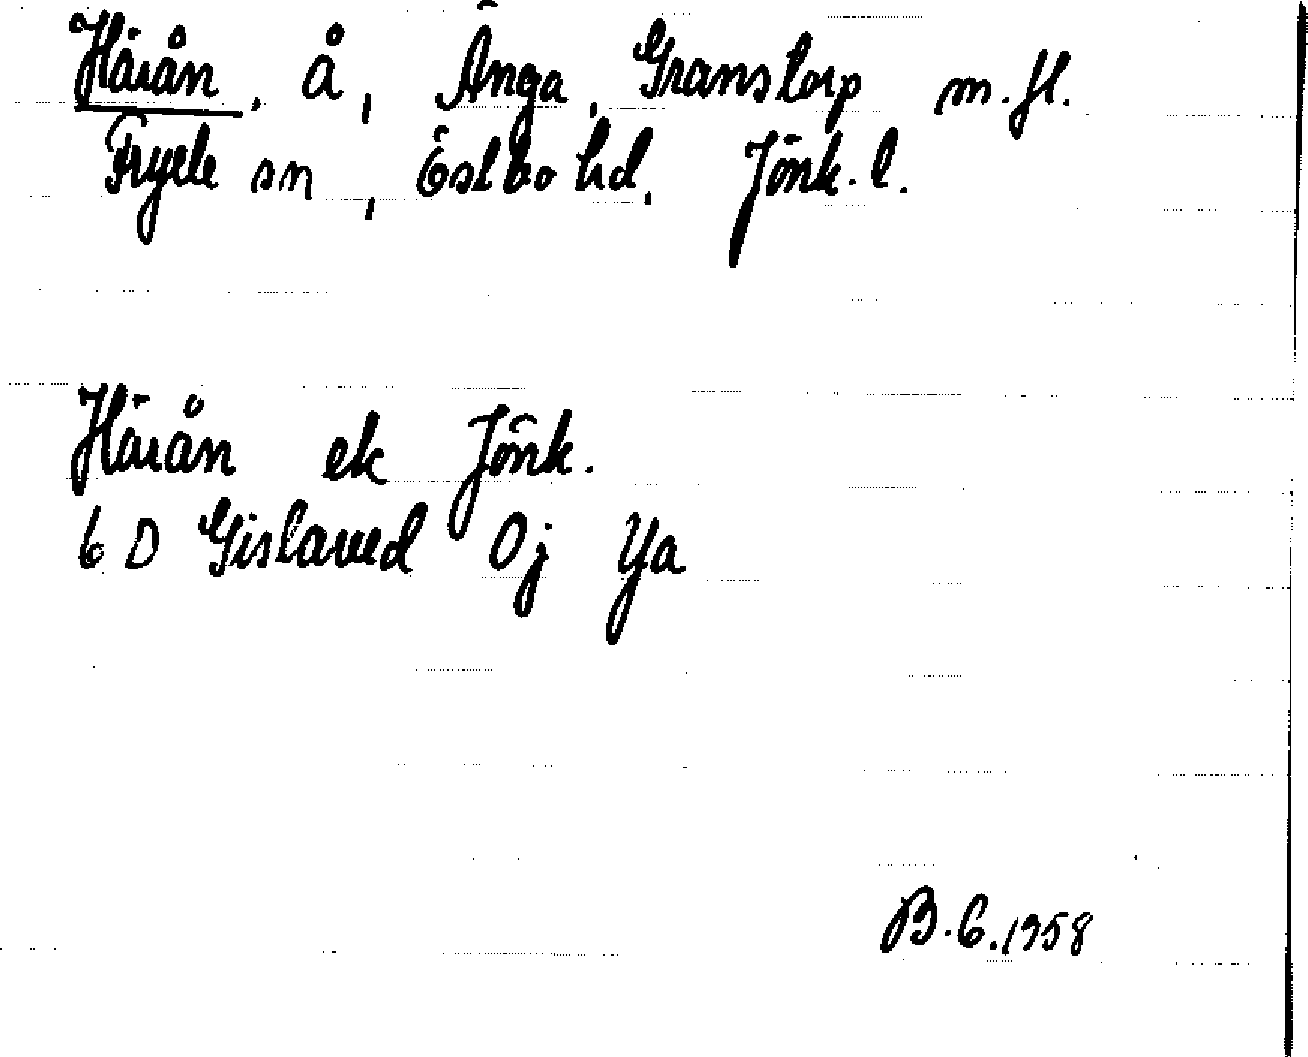 Härån, å, Änga, Granstorp m.fl.
Fryele sn, Östbo hd, Jönk.l.
Härån ek Jönk.
6 D Gislaved Oj Ya
B.G.1958